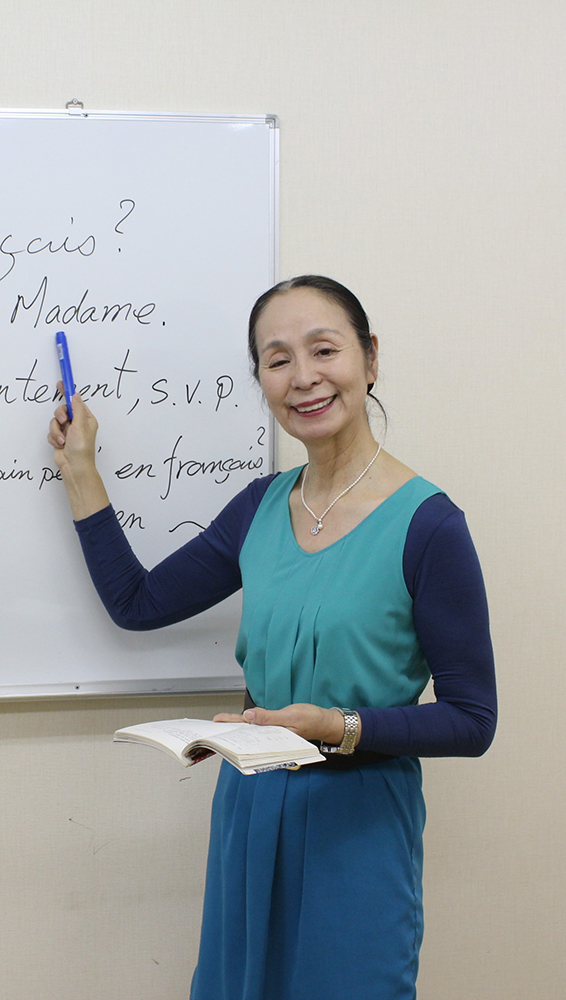 çais ?
Madame.
ntement, s.v.p.
ain pe en français ?
en